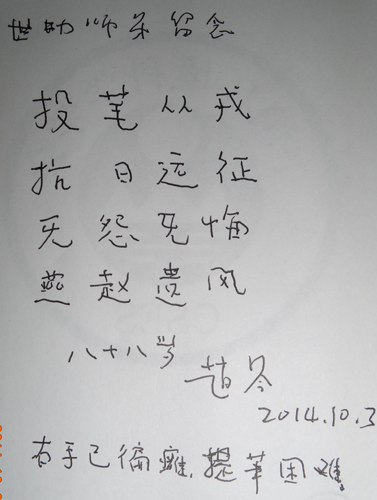 世助师弟留念
投笔从戎
抗日远征
无怨无悔
燕赵遗风
八十八岁
2014.10.3
右手已偏癱,提筆困难